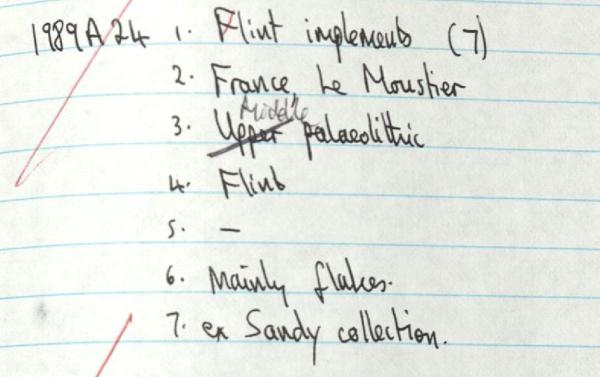 1989A24 1. Flint implements (7)
2. France, Le Moustier
Middle
3. Upper palaeolithic
4. Flint
5. —
6. Mainly flakes.
7. ex Sandy collection.